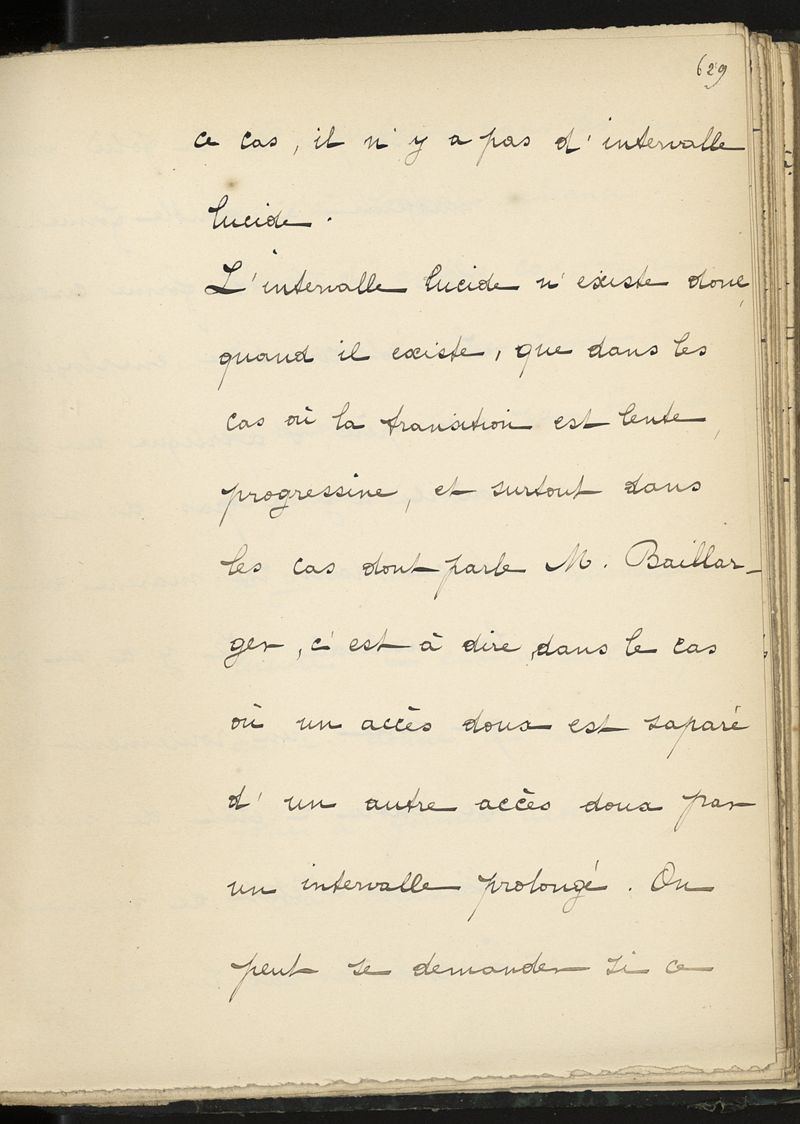 629
ce cas, il n'y a pas d'intervalle
lucide.
L'intervalle lucide n'existe donc,
quand il existe, que dans les
cas où la transition est lente,
progressine, et surtout dans
les cas dont parle M. Baillar-
ger, c'est à dire, dans le cas
où un accès doux est saparé
d'un autre accès doux par
un intervalle prolongé. On
peut se demander si ce